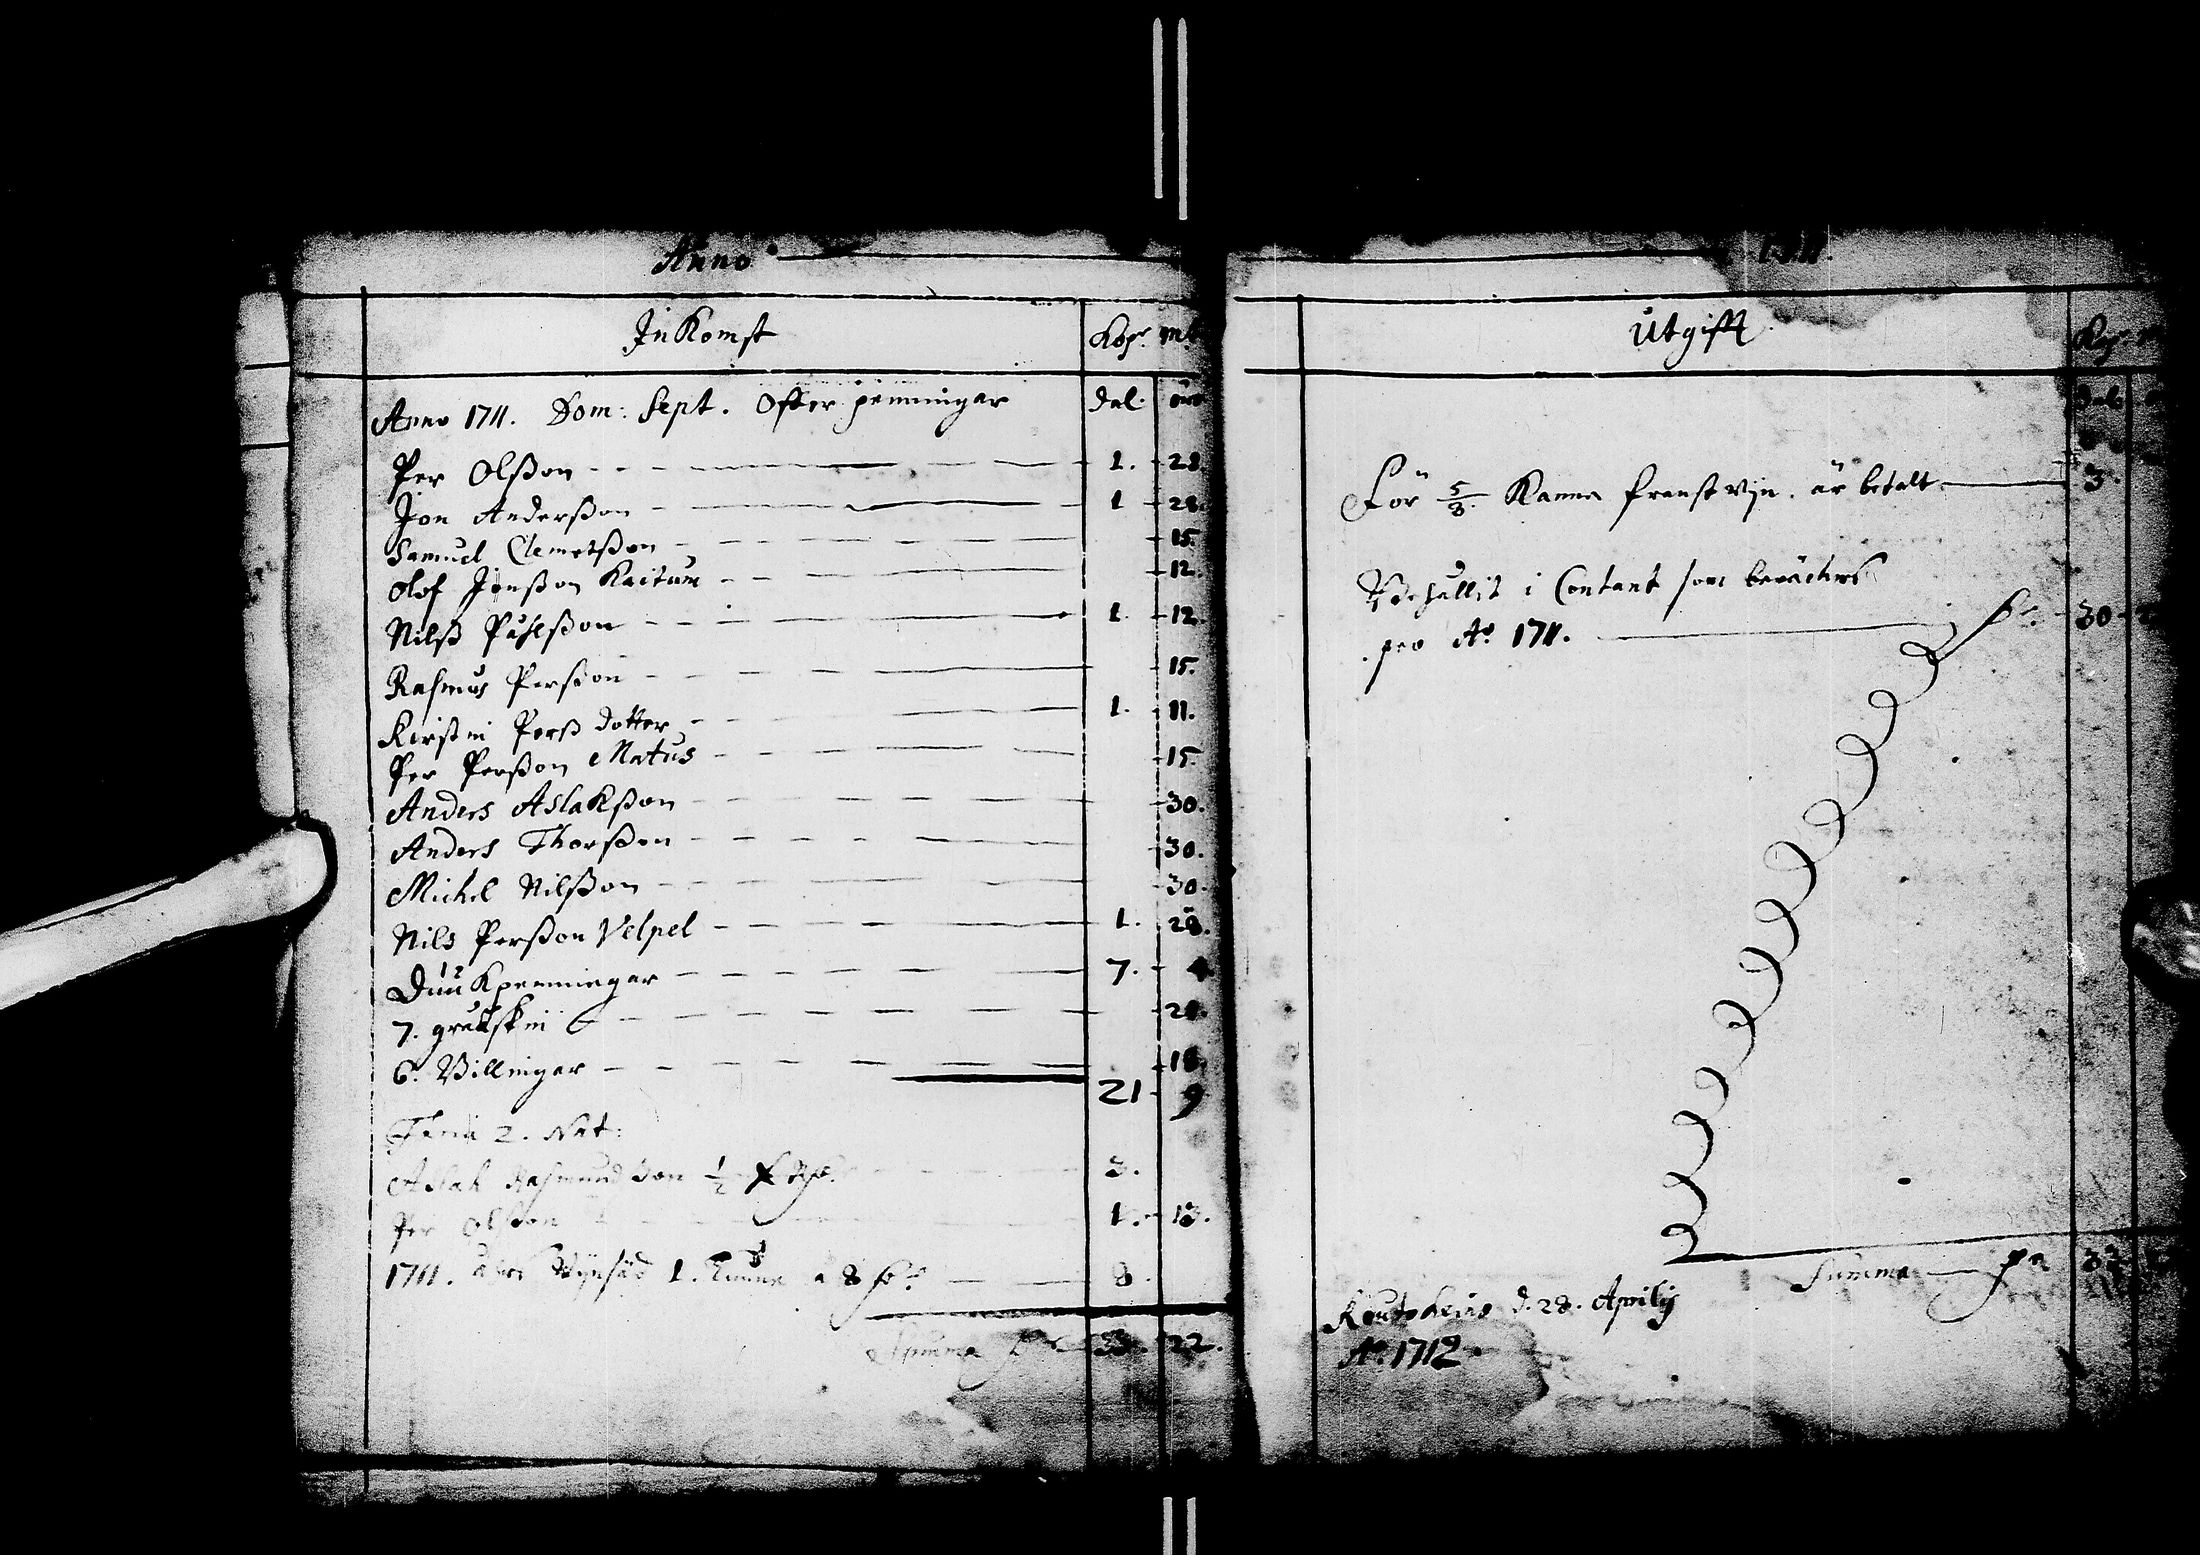 Anno
InKomst Kop:r mt
Anno 1711. Dom: Sept. Offer penningar dal. öre
Per Olßon 1. 28.
Jon Anderßon 1 28.
Samuel Clemetßon 15.
Olof Jonßon Kaitum 12.
Nilß Påhlßon 1. 12.
Rasmus Perßon 15.
Kirstin Perß dotter 1. 11.
Per Perßon Matus 15.
Anders Aslakßon 30.
Anders Thorßon 30.
Michel Nilßon 30.
Nils Perßon Velpel 1. 28.
12
Duukpenningar 7. 4
7. gråskin 28.
6. Villingar 18.
21 9
Feria 2. Nat:
Aslak Rasmundßon 1/2 3.
Per Olßon 1. 13.
1711. 1. Tunna a 8 8.
Summa 22.
1711.
Utgifft
dal.
För 5/8. Kanna franst vijn. är betalt 3.
Behållit i Contant som beräcknas
pro A:o 1711. 30
Summa
d. 28. Aprilij
A:o 1712